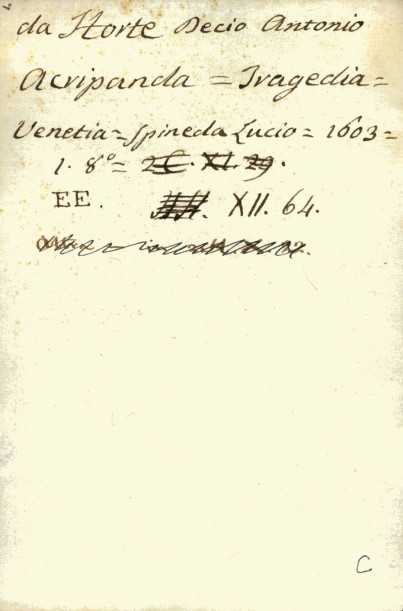 da Horte Decio Antonio
Acripanda = Tragedia =
Venetia = Spineda Lucio = 1603 =
1. 8º = 2 C. XI. 29.
EE. XII. 64.
C